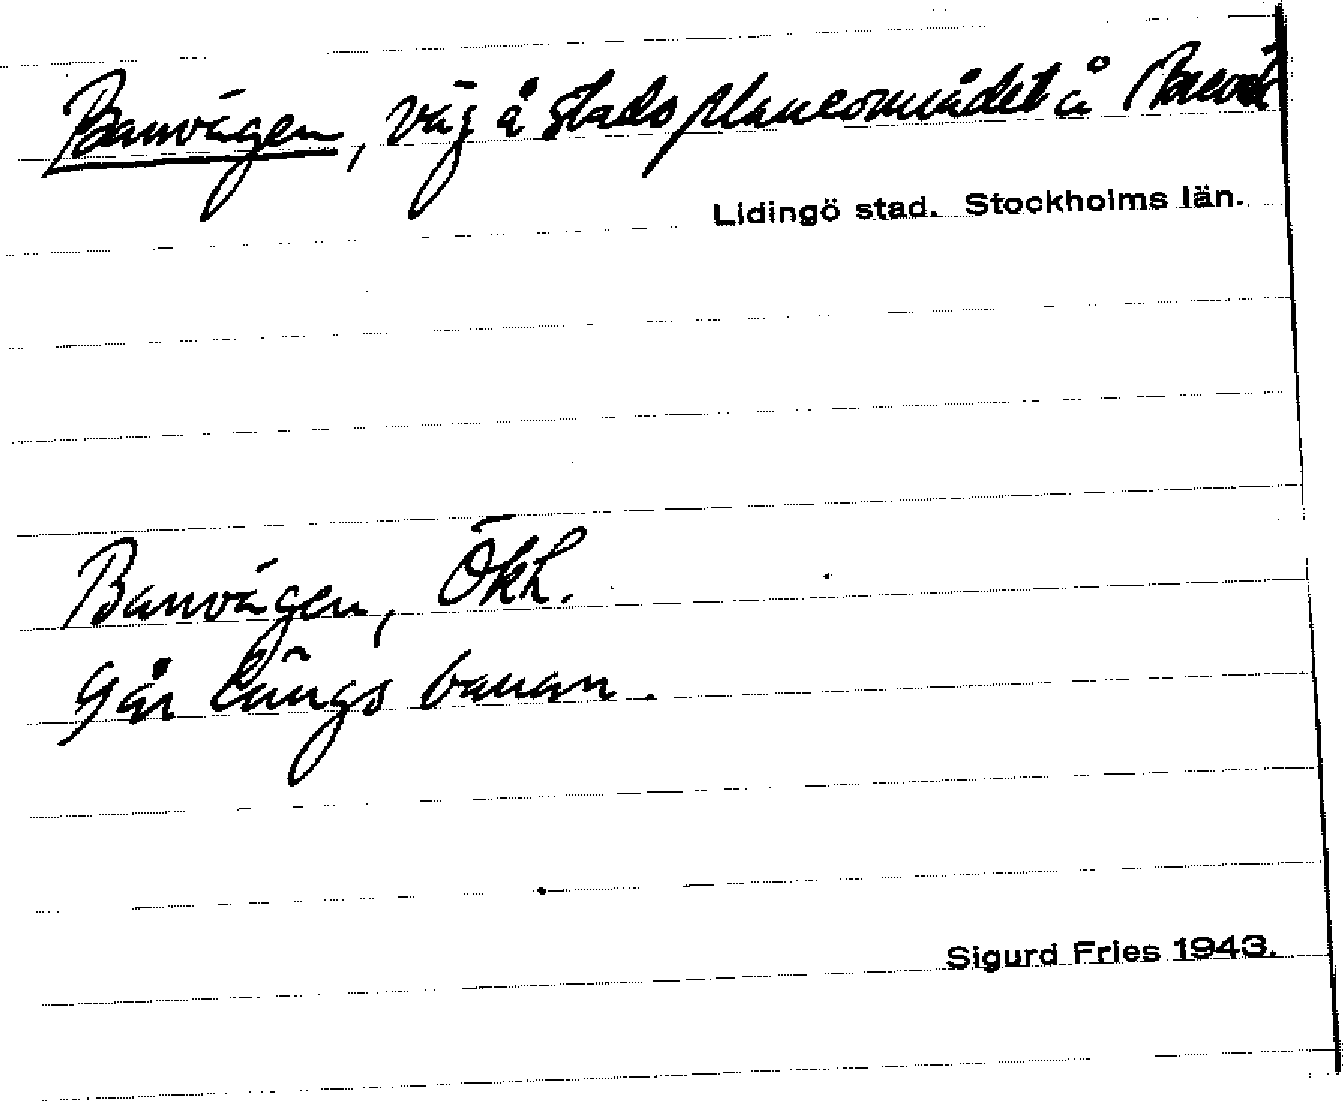 Banvägen, väg å stadsplaneområdet å Brevik
Lidingö stad. Stockholms län.
Banvägen, Ökh.
går längs banan.
Sigurd Fries 1943.